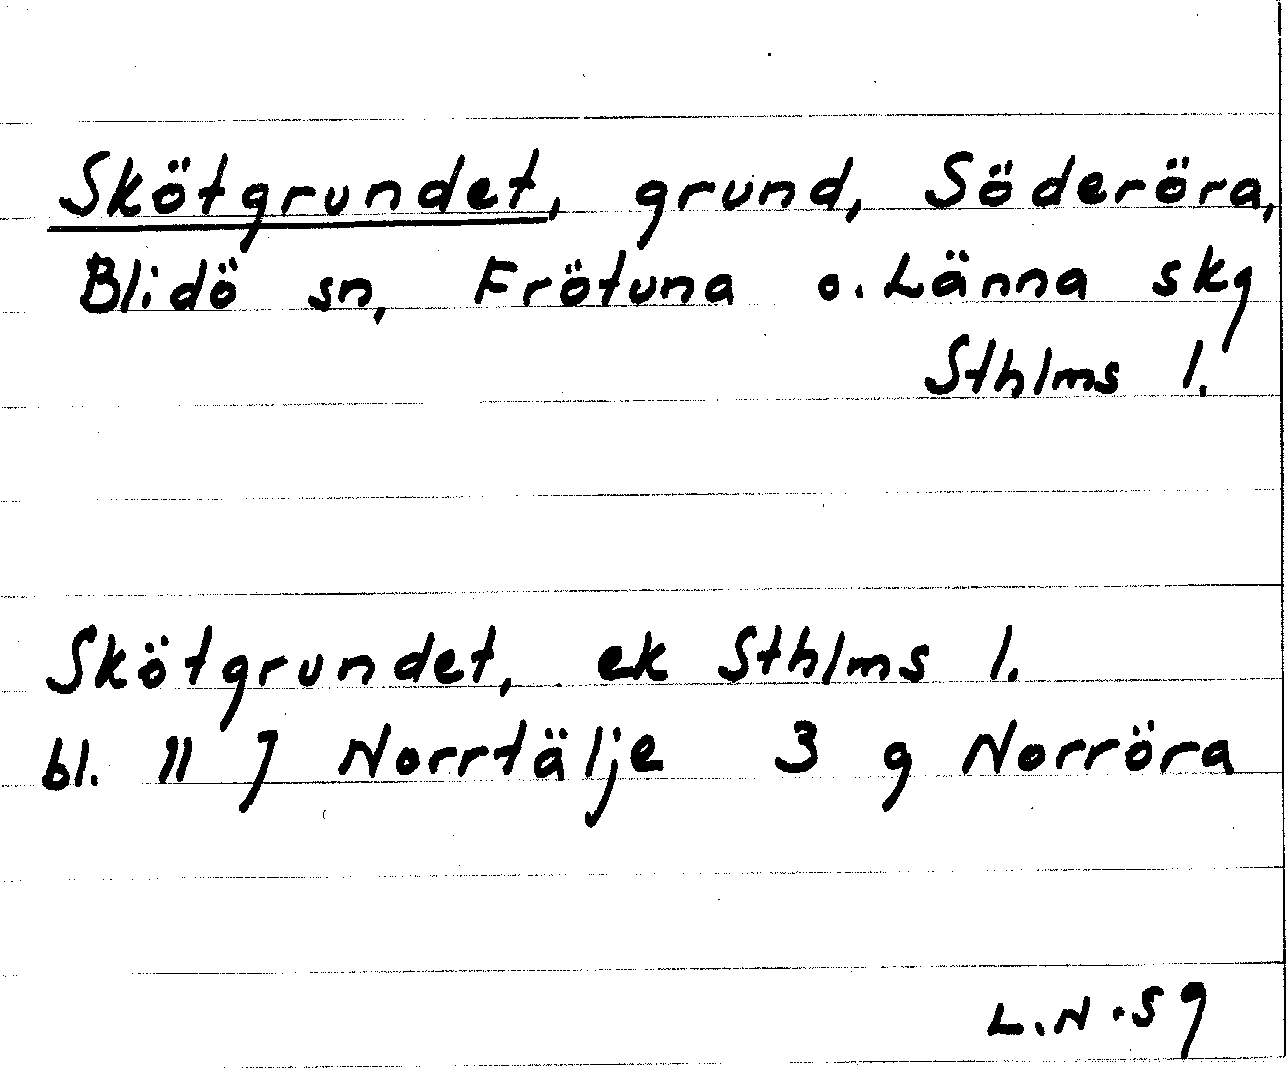 Skötgrundet, grund, Söderöra,
Blidö sn, Frötuna o. Länna skg
Sthlms l.
Skötgrundet, ek Sthlms l.
bl. 11 J Norrtälje 3 g Norröra
L.N -59